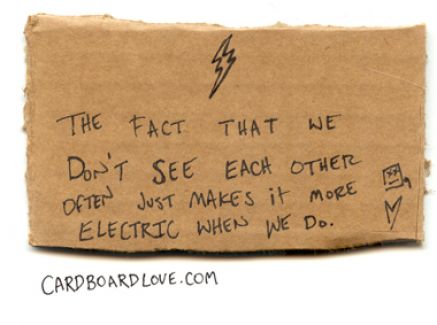 THE FACT THAT WE
DON'T SEE EACH OTHER
OFTEN JUST MAKES iT MORE
ELECTRIC WHEN WE DO.
CARDBOARDLOVE.COM